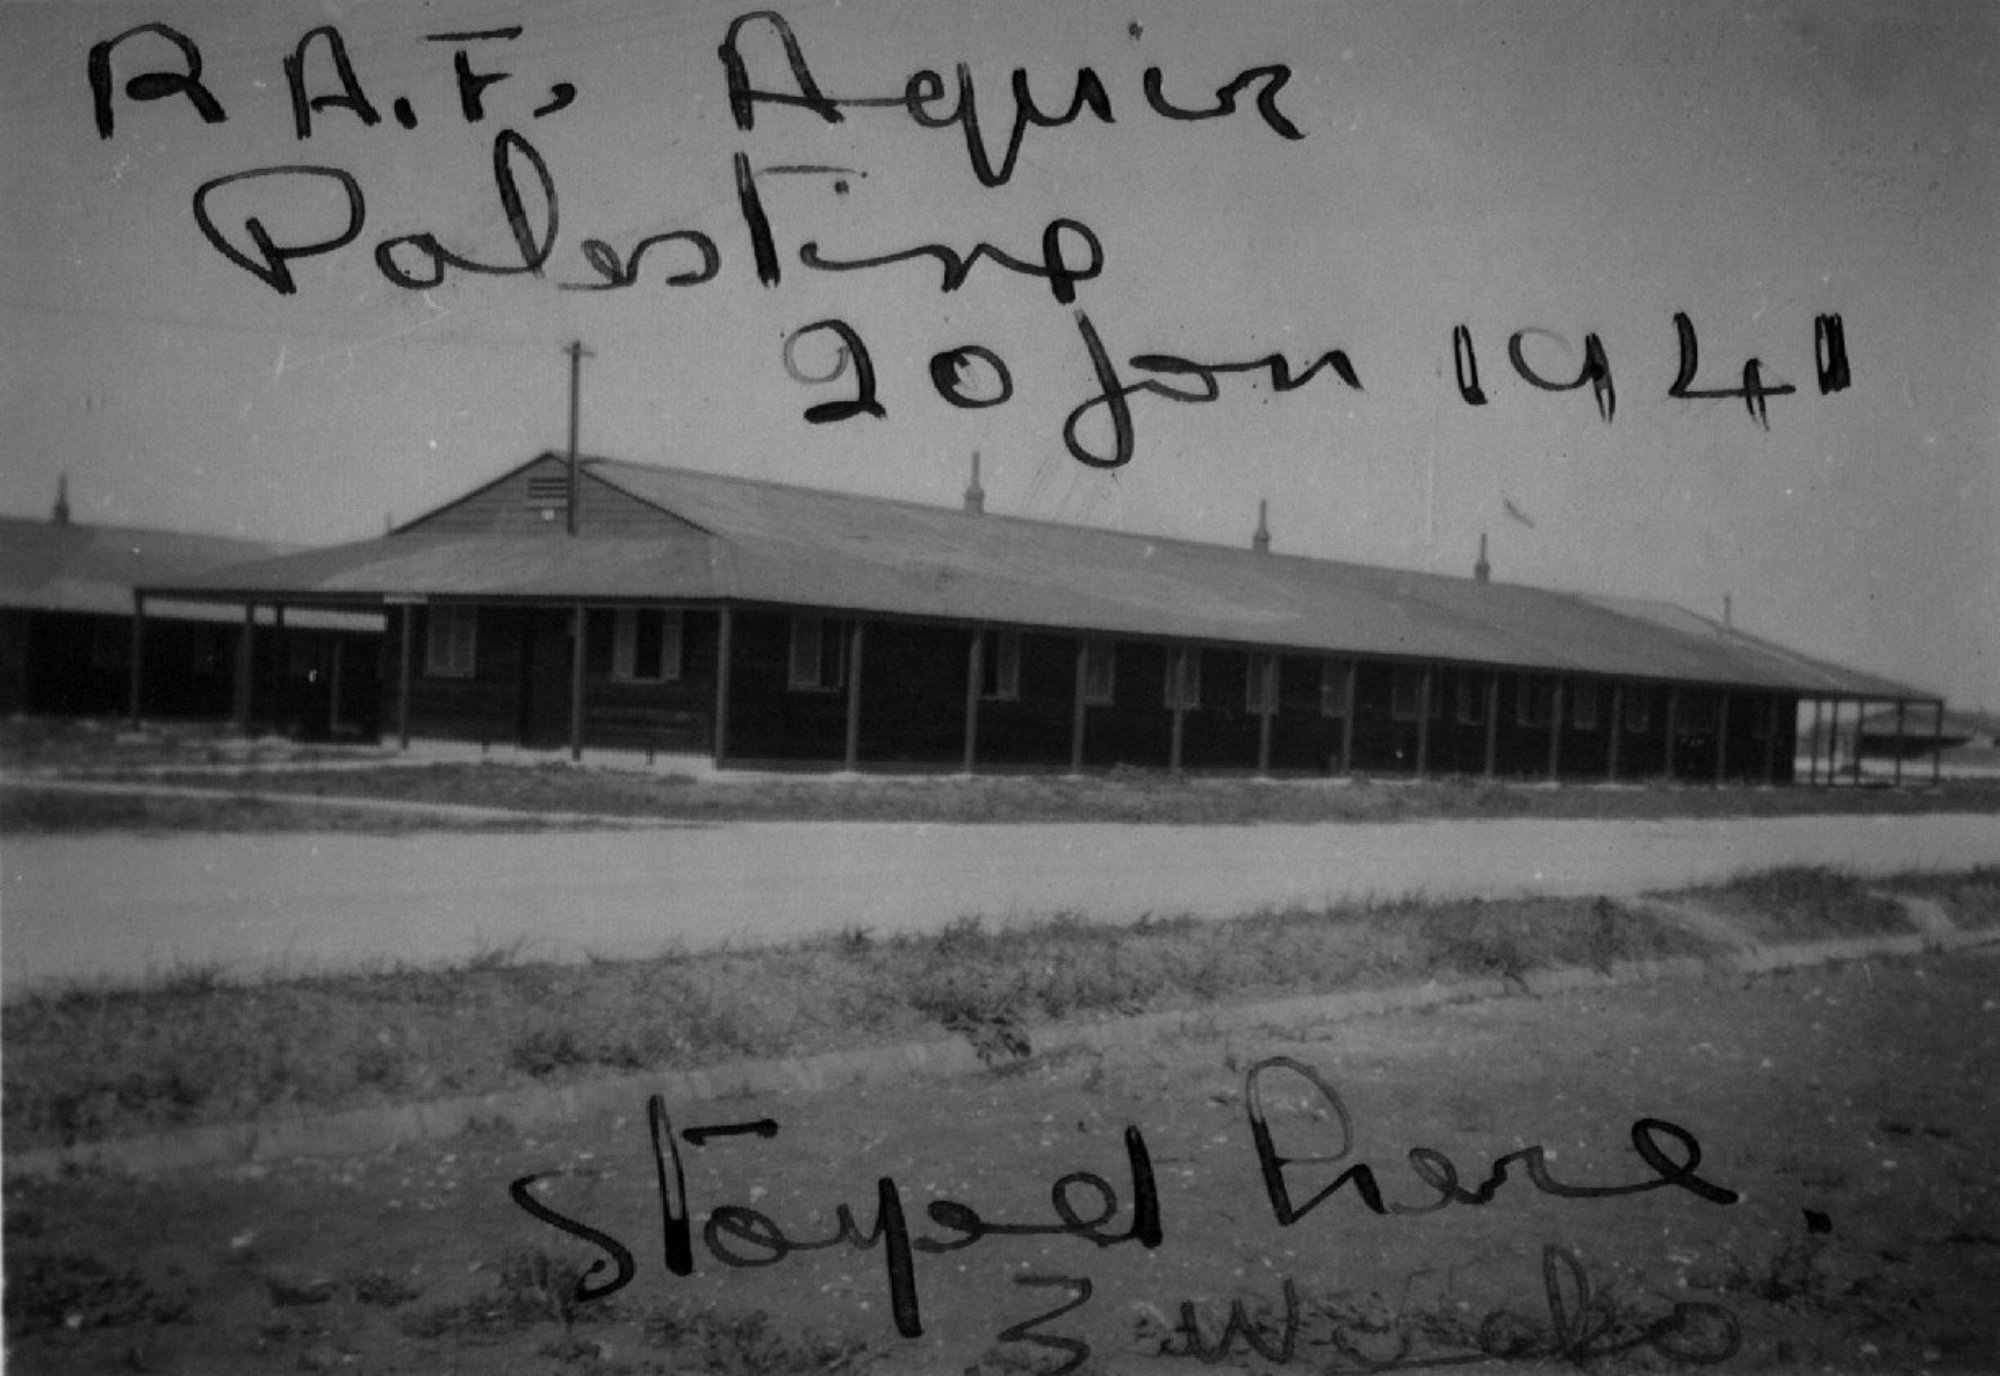 R A.F. Aquir
Palestine
20 Jan 1941
Stayed here.
3 weeks